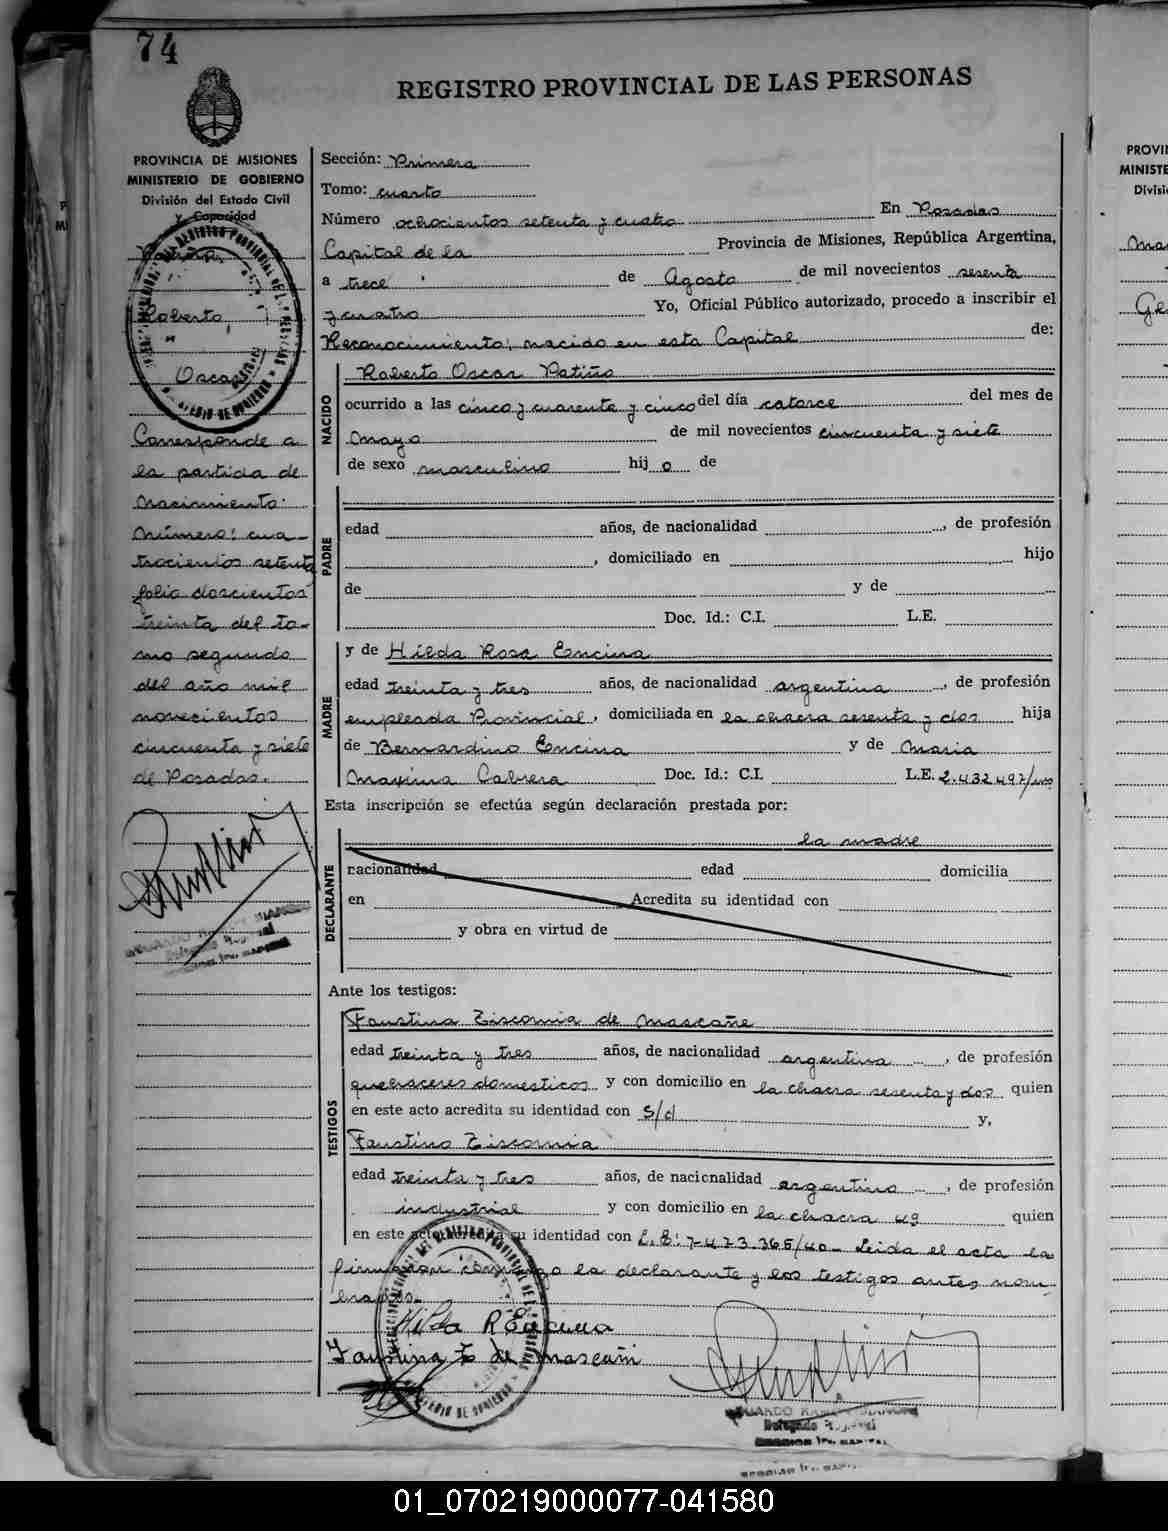 74
REGISTRO PROVINCIAL DE LAS PERSONAS
PROVINCIA DE MISIONES
MINISTERIO DE GOBIERNO
División del Estado Civil
y Capacidad
Roberto,
Oscar
Corresponde a
la partida de
nacimiento:
número: cua-
trocientos setenta
folio doscientos
treinta del to-
mo segundo
del año mil
novecientos
cincuenta y siete
de Posadas.
Sección: Primera
Tomo: cuarto
Número ochocientos setenta y cuatro En Posadas
Capital de la Provincia de Misiones, República Argentina,
a trece de Agosto de mil novecientos sesenta
y cuatro Yo, Oficial Público autorizado, procedo a inscribir el
Reconocimiento; nacido en esta Capital de:
NACIDO
Roberto Oscar Patiño
ocurrido a las cinco y cuarenta y cinco del día catorce del mes de
mayo de mil novecientos cincuenta y siete
de sexo masculino hijo de
PADRE
edad años, de nacionalidad , de profesión
, domiciliado en hijo
de y de
Doc. Id.: C.I. L.E.
MADRE
y de Hilda Rosa Encina
edad treinta y tres años, de nacionalidad argentina , de profesión
empleada Provincial, domiciliada en la chacra sesenta y dos hija
de Bernardino Encina y de Maria
Maxima Cabrera Doc. Id.: C.I. L.E. 2.432.497/
Esta inscripción se efectúa según declaración prestada por:
DECLARANTE
la madre
nacionalidad edad domicilia
en Acredita su identidad con
y obra en virtud de
Ante los testigos:
TESTIGOS
Faustina Ziscomia de Mascañe
edad treinta y tres años, de nacionalidad argentina , de profesión
quehaceres domesticos y con domicilio en la chacra sesenta y dos quien
en este acto acredita su identidad con s/d y,
Faustino Ziscomia
edad treinta y tres años, de nacionalidad argentino , de profesión
industrial y con domicilio en la chacra 49 quien
en este acto acredita su identidad con L.E: 7.473.365/40 - Leida el acta la
firmaron conmigo la declarante y los testigos antes nom-
brados.
Hilda R Encina
Faustina Z de Mascañi
Delegado
PROVIN
MINISTE
Divisi
01_070219000077-041580